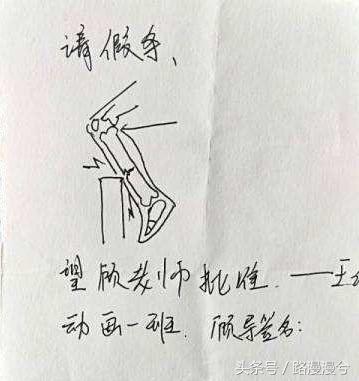 请假条、
望顾老师批准. ——王
动画一班. 顾导签名:
头条号 / 路漫漫兮